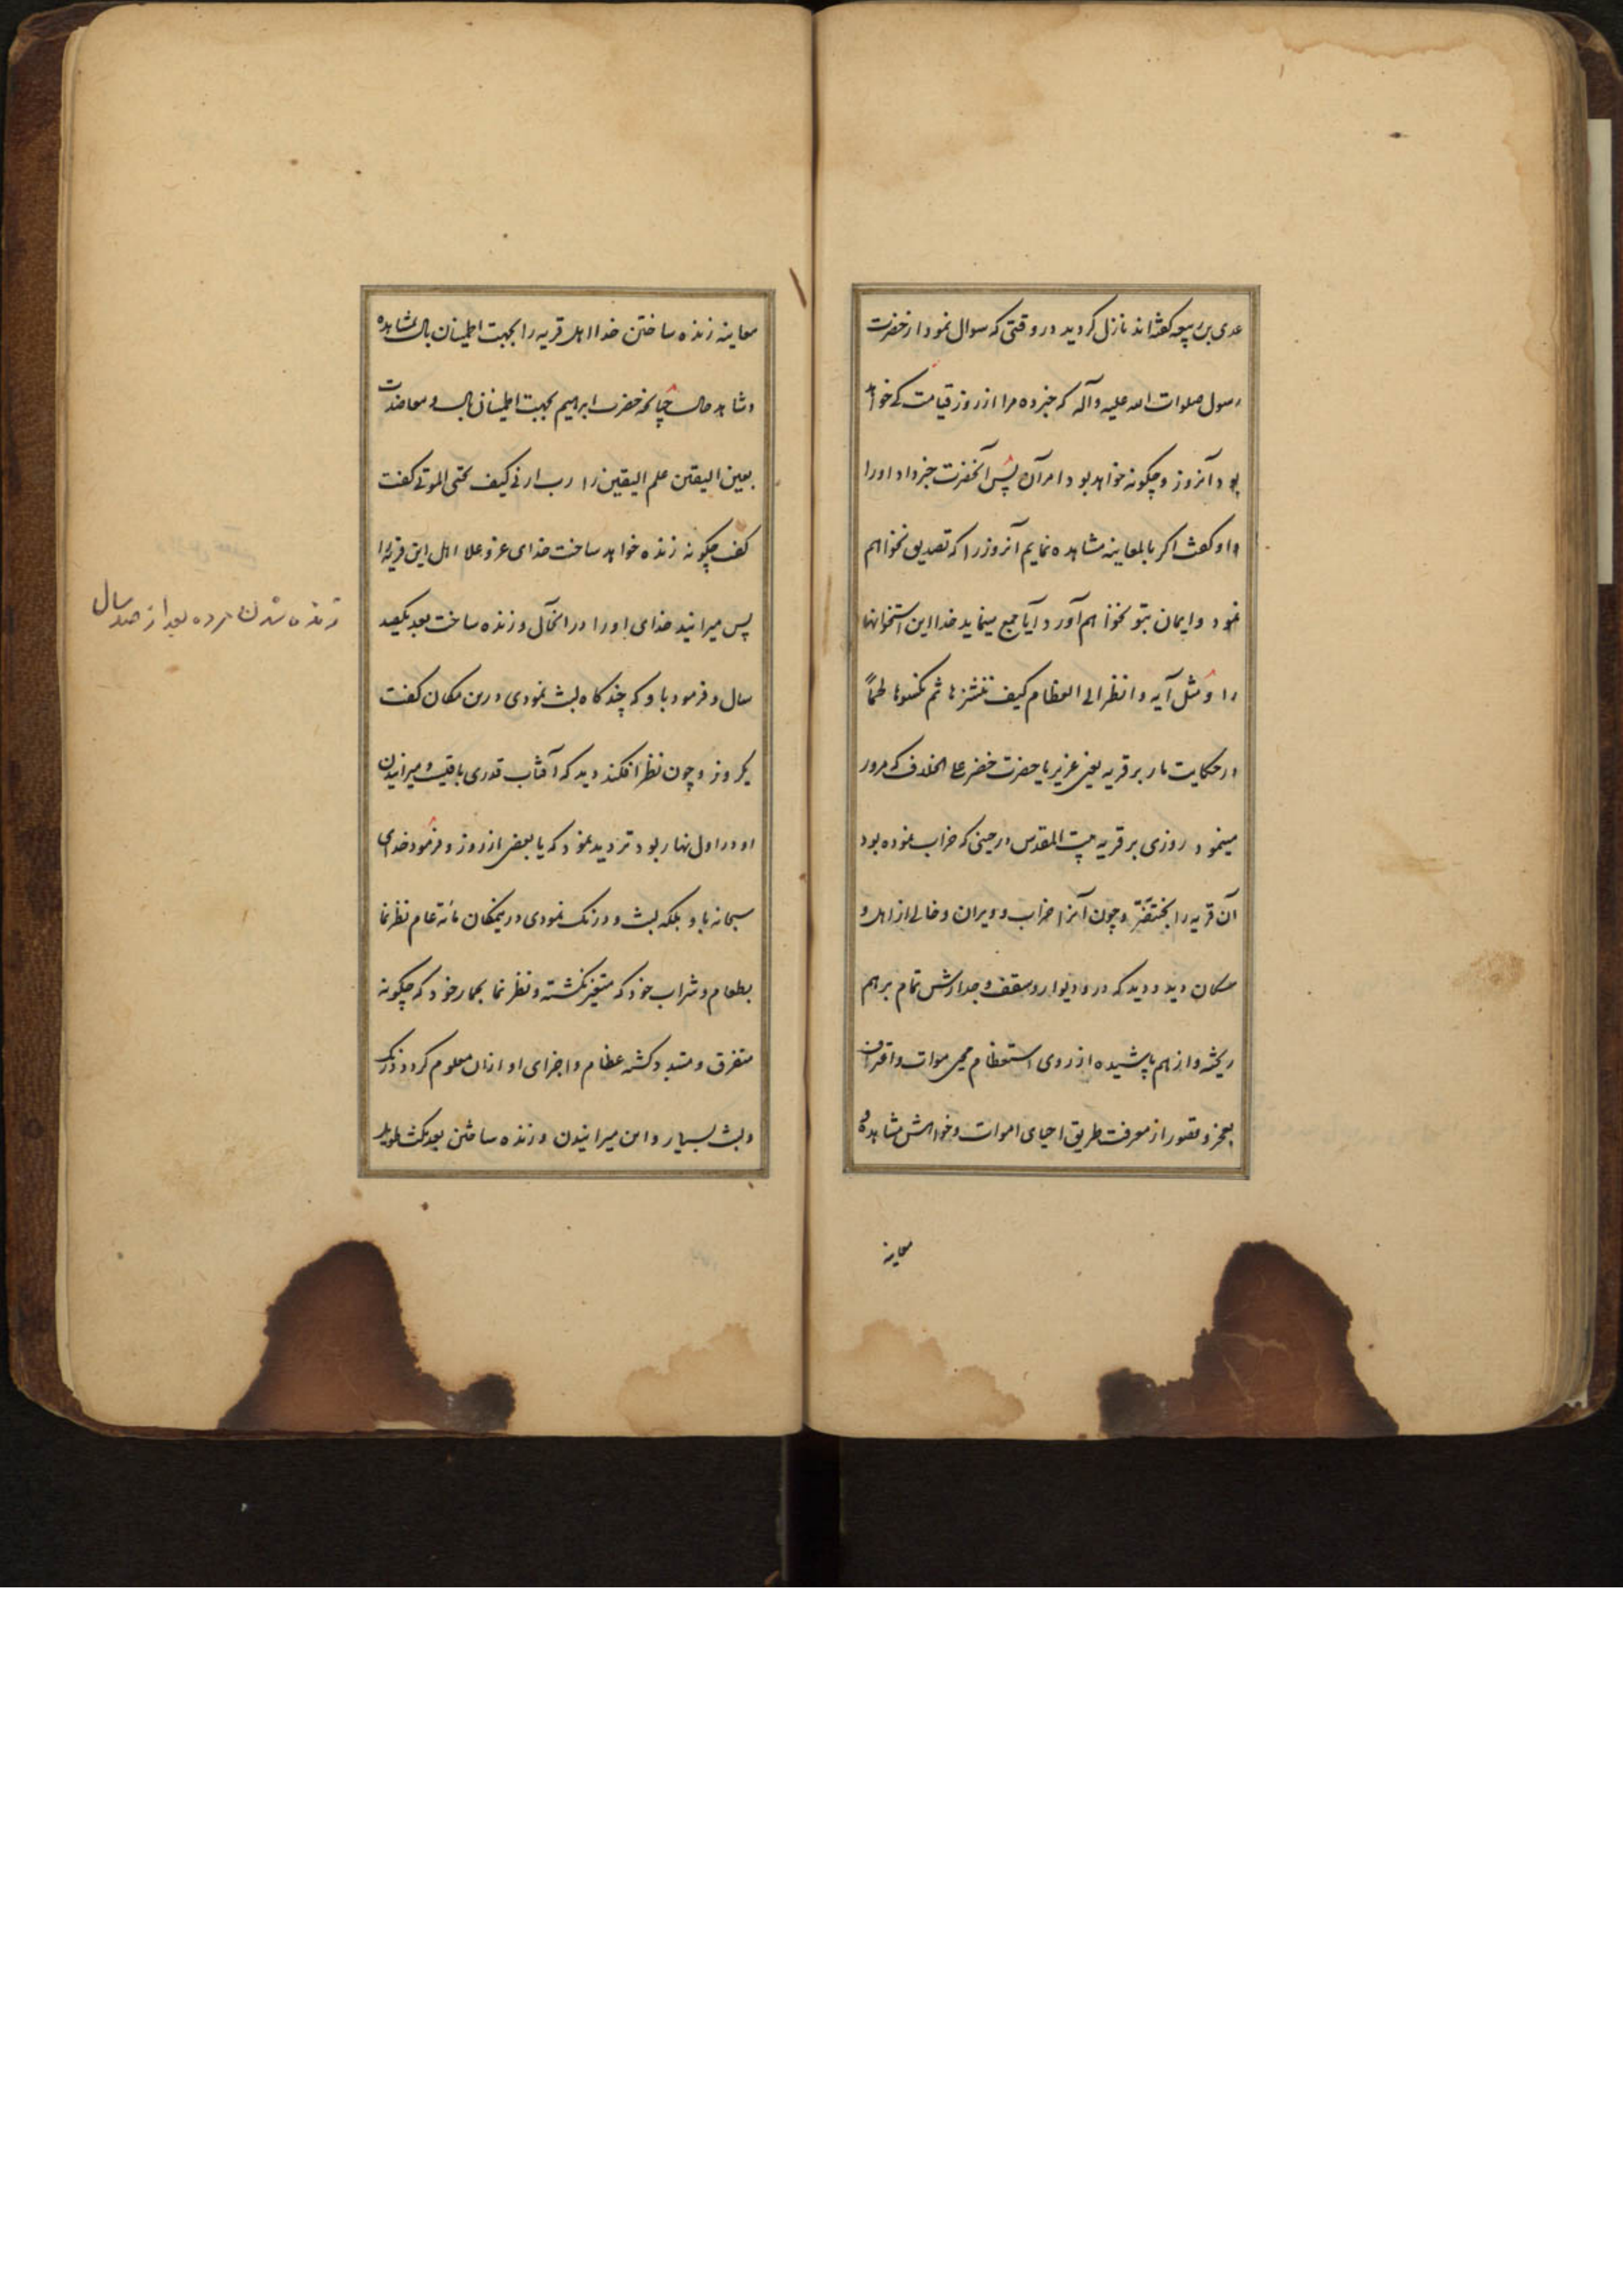 عدی بن ربیعه گفته‌اند نازل کردید در وقتی که سوال نمود از حضرت
رسول صلوات الله علیه وآله که خبر ده مرا از روز قیامت که خواهد
بود آنروز و چکونه خواهد بود امر آن پس آنحضرت خبر داد او را
و او کفت اکر بالمعاینه مشاهده نمایم آنروز را که تصدیق نخواهم
نمود و ایمان بتو نخواهم آورد آیا جمع مینماید خدا این استخوانها
را و مثل آیه وانظر الی العظام کیف ننشزها ثم نکسوها لحماً
در حکایت مار بر قریه یعنی عزیر یا حضرت خضر علی الخلاف که مرور
مینمود روزی بر قریه بیت المقدس در حینی که خراب نموده بود
آن قریه را بختنصر و چون آنرا خراب و ویران و خالی از اهل و
سکان دید و دید که در و دیوار و سقف و جدارش تمام بر هم
ریخته و از هم پاشیده از روی استعظام محیی موات و اعتراف
بعجز و قصور از معرفت طریق احیای اموات و خواهش مشاهده و
معاینه
معاینه زنده ساختن خدا اهل قریه را بجهت اطمینان بال بمشاهده
و شاهد حال چنانچه حضرت ابراهیم بجهت اطمینان بال و معاضدت
بعین الیقین علم الیقین را رب ارنی کیف تحیی الموتی کفت
کفت چکونه زنده خواهد ساخت خدای عز و علا اهل این قریه را
پس میرانید خدای او را در آنحال و زنده ساخت بعد یکصد
سال و فرمود باو که چند کاه لبث نمودی درین مکان کفت
یکروز و چون نظر افکند دید که آفتاب قدری باقیست و میرانیدن
او در اول نهار بود تردید نمود که یا بعض از روز و فرمود خدای
سبحانه باو بلکه لبث و درنک نمودی دریمکان مائة عام نظر نما
بطعام و شراب خود که متغیر نکشته و نظر نما بحمار خود که چکونه
متفرق و متبدد کشته عظام و اجزای او از ان معلوم کردد درنک
و لبث بسیار و این میرانیدن و زنده ساختن بعد مکث طویل
زنده شدن مرده بعد از صد سال